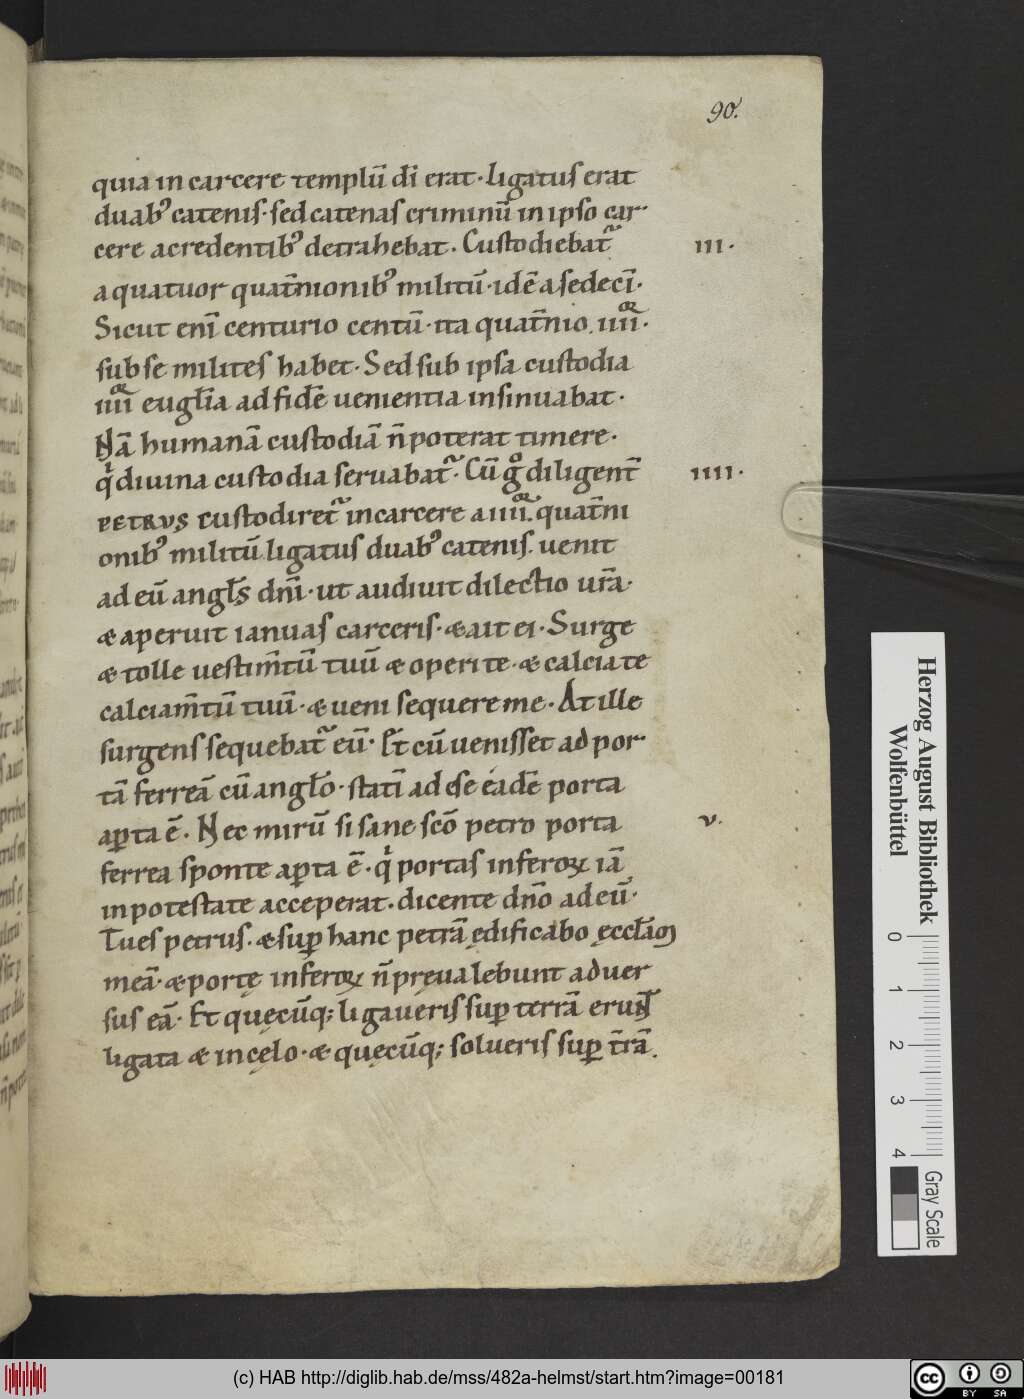 90.
quia in carcere templū dī erat· Ligatus erat
duabꝰ catenis· sed catenas criminū in ipso car-
cere a credentibꝰ detrahebat. Custodiebat᷑
III.
a quatuor quat̄nionibꝰ militū· idē a sedecī.
Sicut enī centurio centū· ita quat̄nio. iiiiꝶ.
sub se milites habet· Sed sub ipsa custodia
iiiiꝶ eugl̄ia ad fidē uenientia insinuabat.
Nā humanā custodiā n̄ poterat timere.
qͥ diuina custodia seruabat᷑. Cū gͦ diligent̄
IIII.
PETRVS custodiret᷑ in carcere a iiiiꝶ. quat̄ni
onibꝰ militū ligatus duabꝰ catenis. uenit
ad eū angl̄s dn̄i· ut audiuit dilectio ur̄a·
& aperuit ianuas carceris· & ait ei· Surge
& tolle uestim̄tū tuū & operi te· & calcia te
calciam̄tū tuū· & ueni sequere me. At ille
surgens sequebat᷑ eū. Et̄ cū uenisset ad por-
tā ferreā cū angl̄o· statī ad ese eadē porta
aꝑta ē. Nec mirū si sane scō petro porta
v.
ferrea sponte aꝑta ē. qͥ portas inferoꝝ iā
in potestate acceperat. dicente dn̄o ad eū·
Tu es petrus. & suꝑ hanc petrā ędificabo ęccl̄am
meā· & portę inferoꝝ n̄ pręualebunt aduer
sus eā· Et quęcūq; ligaueris suꝑ terrā erun̄t
ligata & in cęlo· & quęcūq; solueris suꝑ tr̄ā.
Herzog August Bibliothek
Wolfenbüttel
0
1
2
3
4
Gray Scale
(c) HAB http://diglib.hab.de/mss/482a-helmst/start.htm?image=00181
cc
BY
SA